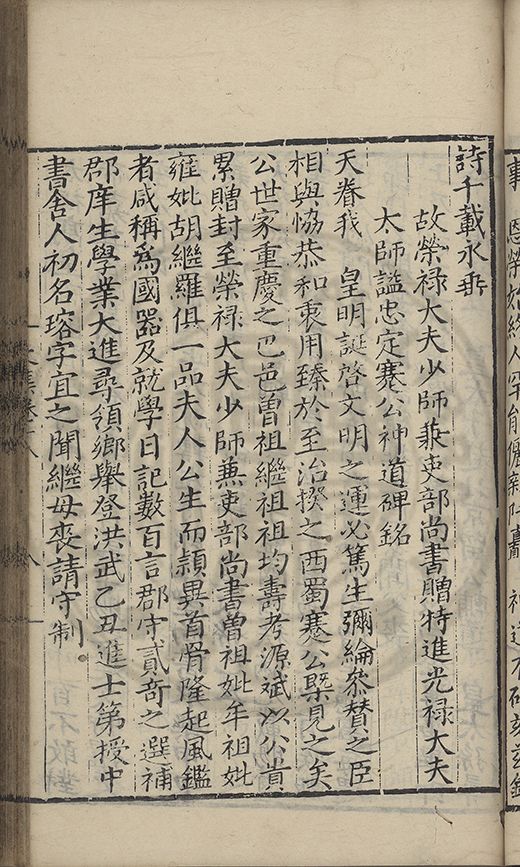 事 恩榮始終人罕能
詩千載永垂
故榮禄大夫少師兼吏部尚書贈特進光禄大夫
太師謚忠定蹇公神道碑銘
天眷我 皇明誕啓文明之運必篤生彌綸叅賛之臣
相與恊恭和衷用臻於至治揆之西蜀蹇公槩見之矣
公世家重慶之巴邑曽祖繼祖祖均壽考源斌以公貴
累贈封至榮禄大夫少師兼吏部尚書曽祖妣牟祖妣
雍妣胡繼羅俱一品夫人公生而頴異首骨隆起風鑑
者咸稱爲國器及就學日記數百言郡守貳竒之選補
郡庠生學業大進尋領鄉舉登洪武乙丑進士第授中
書舍人初名瑢字宜之聞繼母喪請守制